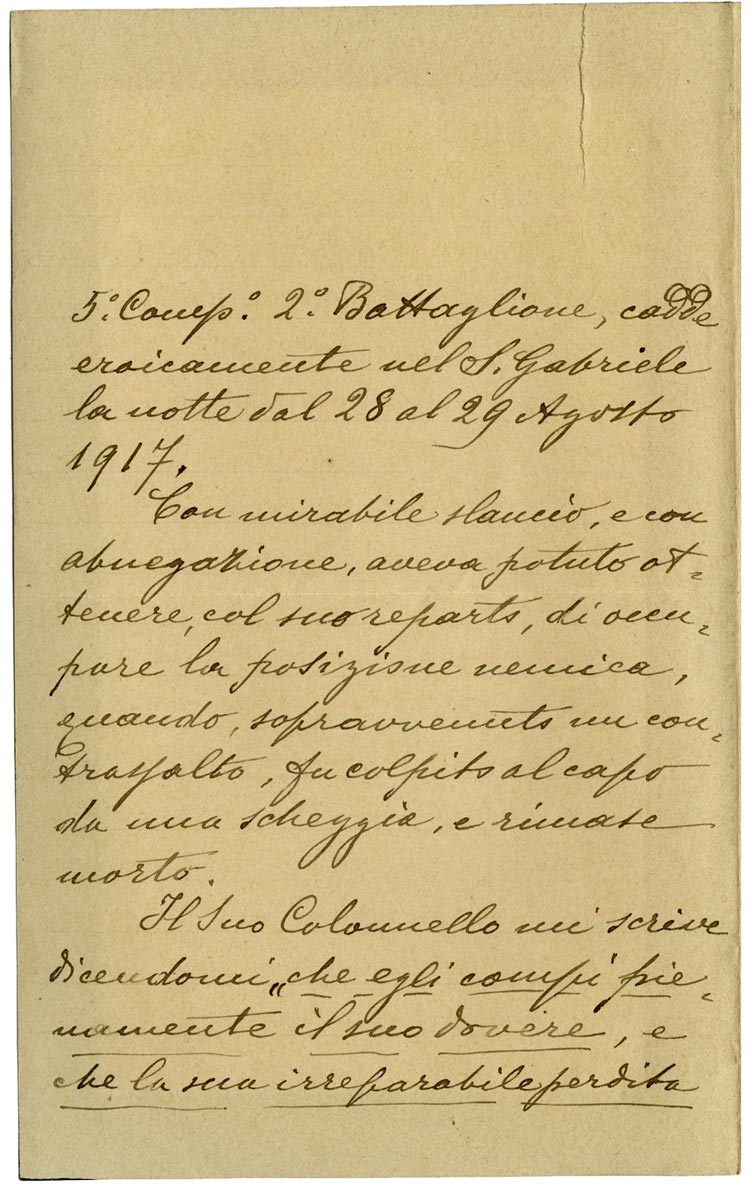 5º. Comp.º 2º. Battaglione, cadde
eroicamente nel S. Gabriele
la notte dal 28 al 29 Agosto
1917.
Con mirabile slancio, e con
abnegazione, aveva potuto ot=
tenere, col suo reparto, di occu=
pare la posizione nemica,
quando, sopravvenuto un con=
trassalto, fu colpito al capo
da una scheggia, e rimase
morto.
Il Suo Colonnello mi scrive
dicendomi „che egli compì pie=
namente il suo dovere, e
che la sua irreparabile perdita